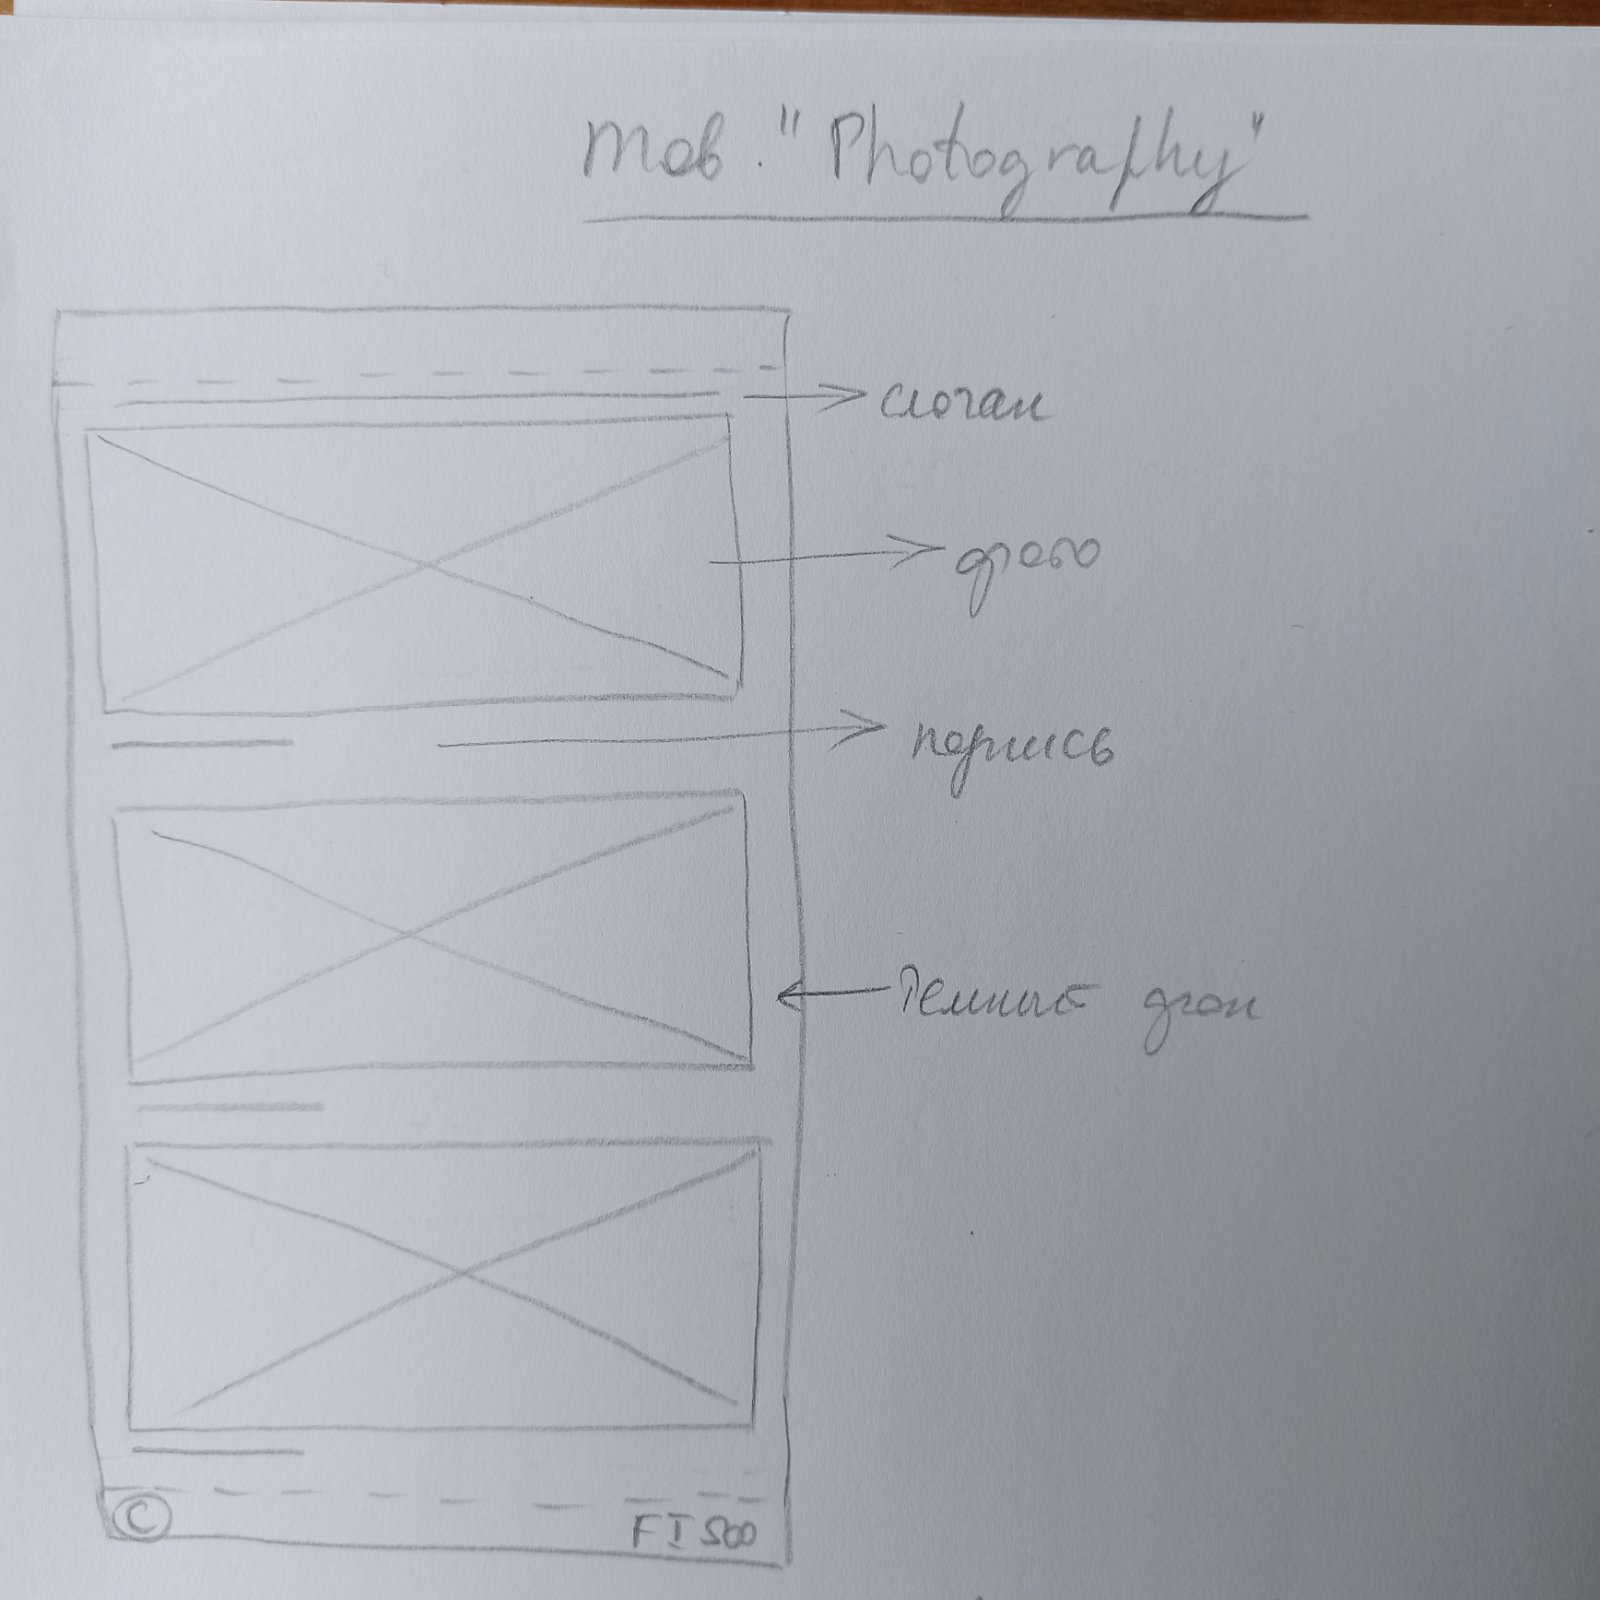 моб. "Photography"
слоган
фото
подпись
Темный фон
©
F I 500